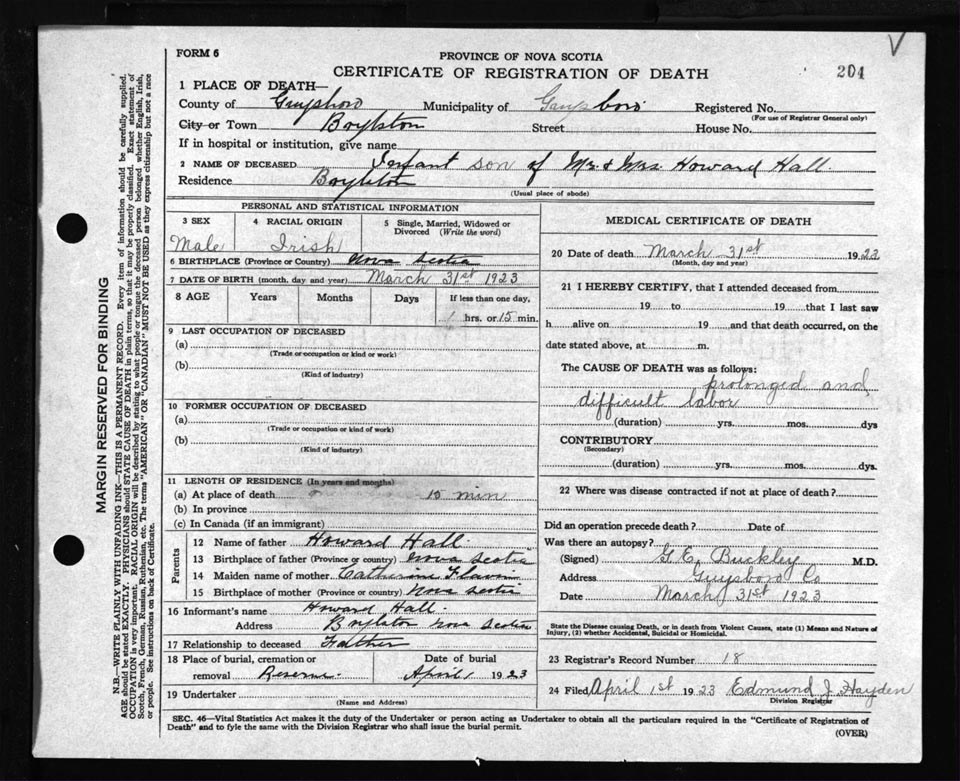 FORM 6
PROVINCE OF NOVA SCOTIA
CERTIFICATE OF REGISTRATION OF DEATH
204
V
1 PLACE OF DEATH—
County of Guysboro Municipality of Guysboro Registered No.
(For use of Registrar General only)
City or Town Boylston Street House No.
If in hospital or institution, give name
2 NAME OF DECEASED Infant son of Mr & Mrs. Howard Hall.
Residence Boylston
(Usual place of abode)
PERSONAL AND STATISTICAL INFORMATION
3 SEX
Male
4 RACIAL ORIGIN
Irish
5 Single, Married, Widowed or
Divorced (Write the word)
6 BIRTHPLACE (Province or Country) Nova Scotia
7 DATE OF BIRTH (month, day and year) March 31st 1923
8 AGE Years Months Days If less than one day,
1 hrs. or 15 min.
9 LAST OCCUPATION OF DECEASED
(a)
(Trade or occupation or kind or work)
(b)
(Kind of industry)
10 FORMER OCCUPATION OF DECEASED
(a)
(Trade or occupation or kind of work)
(b)
(Kind of industry)
11 LENGTH OF RESIDENCE (In years and months)
(a) At place of death 15 min
(b) In province
(c) In Canada (if an immigrant)
Parents
12 Name of father Howard Hall.
13 Birthplace of father (Province or country) Nova Scotia
14 Maiden name of mother Catherine Flavin
15 Birthplace of mother (Province or country) Nova Scotia
16 Informant's name Howard Hall.
Address Boylston Nova Scotia
17 Relationship to deceased Falther
18 Place of burial, cremation or
removal Reserve.
Date of burial
April 1 1923
19 Undertaker
(Name and Address)
MEDICAL CERTIFICATE OF DEATH
20 Date of death March 31st 1923
(Month, day and year)
21 I HEREBY CERTIFY, that I attended deceased from
19 to 19 that I last saw
h alive on 19 and that death occurred, on the
date stated above, at m.
The CAUSE OF DEATH was as follows:
prolonged and
difficult labor
(duration) yrs. mos. dys
CONTRIBUTORY
(Secondary)
(duration) yrs. mos. dys.
22 Where was disease contracted if not at place of death?
Did an operation precede death? Date of
Was there an autopsy?
(Signed) G. E. Buckley M.D.
Address Guysboro Co
Date March 31st 1923
State the Disease causing Death, or in death from Violent Causes, state (1) Means and Nature of
Injury, (2) whether Accidental, Suicidal or Homicidal.
23 Registrar's Record Number 18
24 Filed April 1st 1923 Edmund J. Hayden
Division Registrar
SEC. 46—Vital Statistics Act makes it the duty of the Undertaker or person acting as Undertaker to obtain all the particulars required in the "Certificate of Registration of
Death" and to fyle the same with the Division Registrar who shall issue the burial permit.
(OVER)
MARGIN RESERVED FOR BINDING
N.B.—WRITE PLAINLY, WITH UNFADING INK—THIS IS A PERMANENT RECORD. Every item of information should be carefully supplied.
AGE should be stated EXACTLY. PHYSICIANS should STATE CAUSE OF DEATH in plain terms, so that it may be properly classified. Exact statement of
OCCUPATION is very important. RACIAL ORIGIN will be described by stating to what people or tongue the deceased person belonged whether English, Irish,
Scotch, French, German, Russian, Ruthenian, etc. The terms "AMERICAN" OR "CANADIAN" MUST NOT BE USED as they express citizenship but not a race
or people. See instructions on back of Certificate.